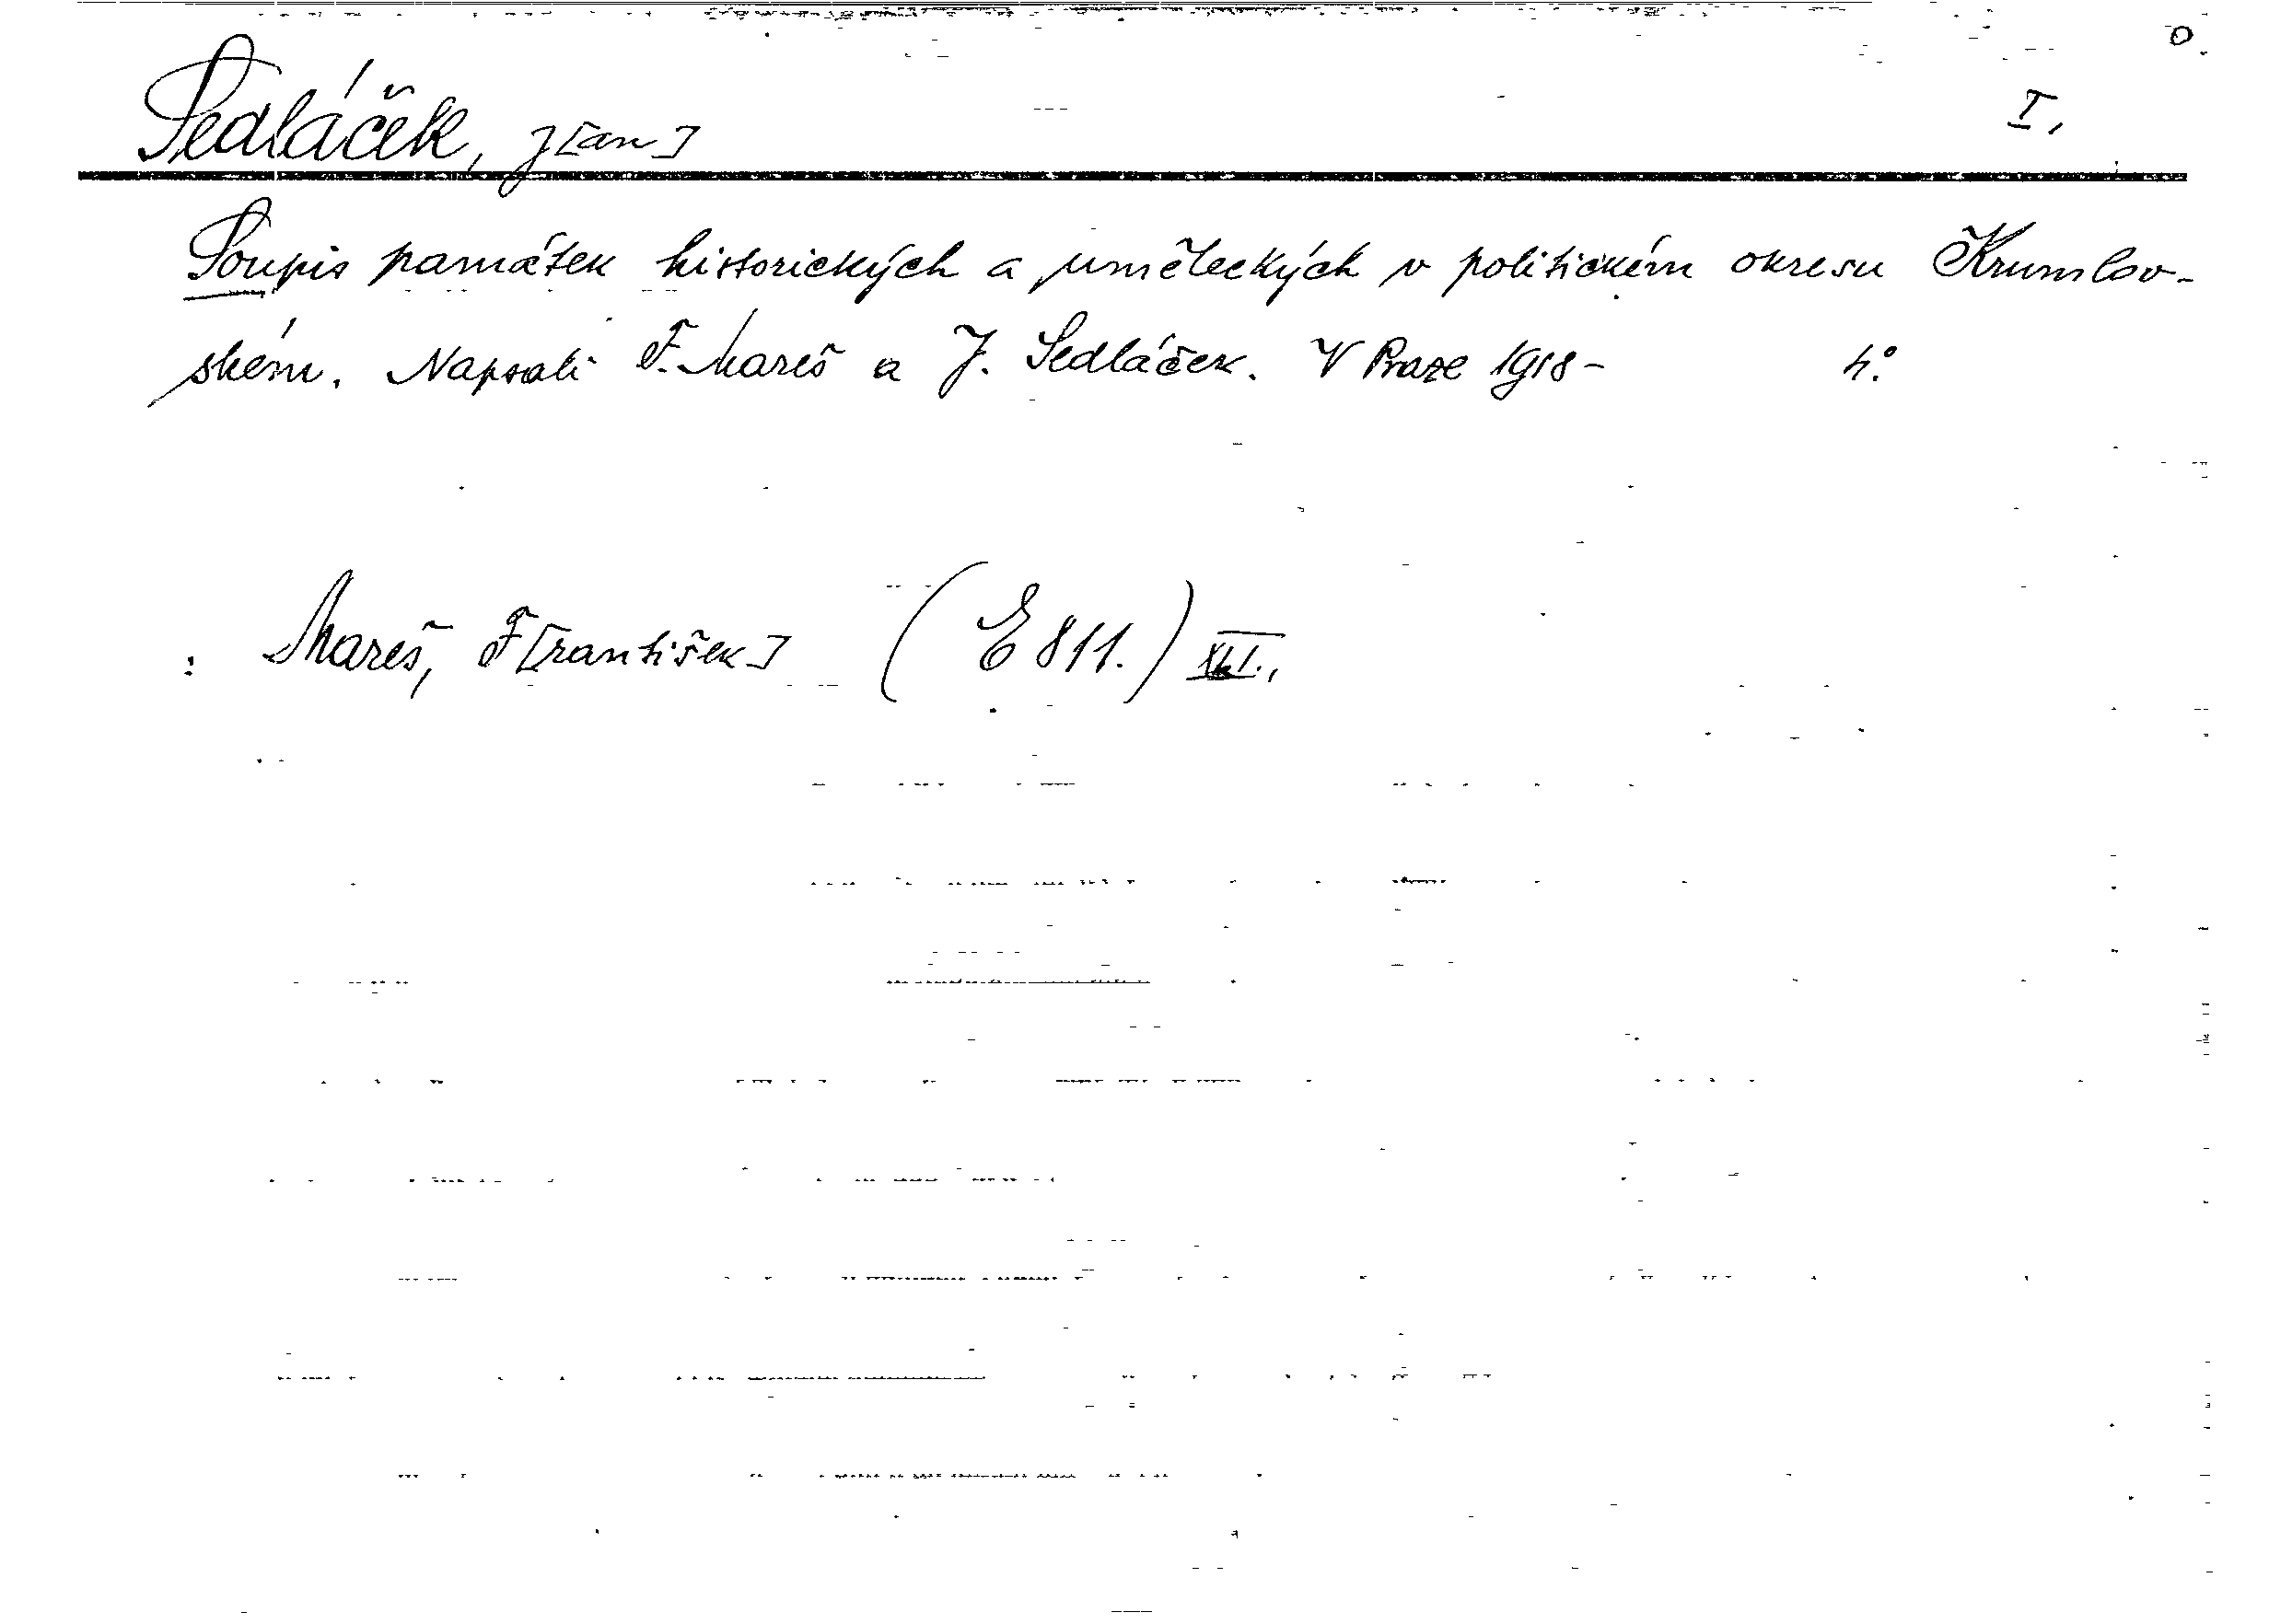 Sedláček, J[an] I,
Soupis památek historických a uměleckých v politickém okresu Krumlov-
ském. Napsali F. Mareš a J. Sedláček. V Praze 1918- 4.°
: Mareš, F[rantišek] (E 811.) XLI.,